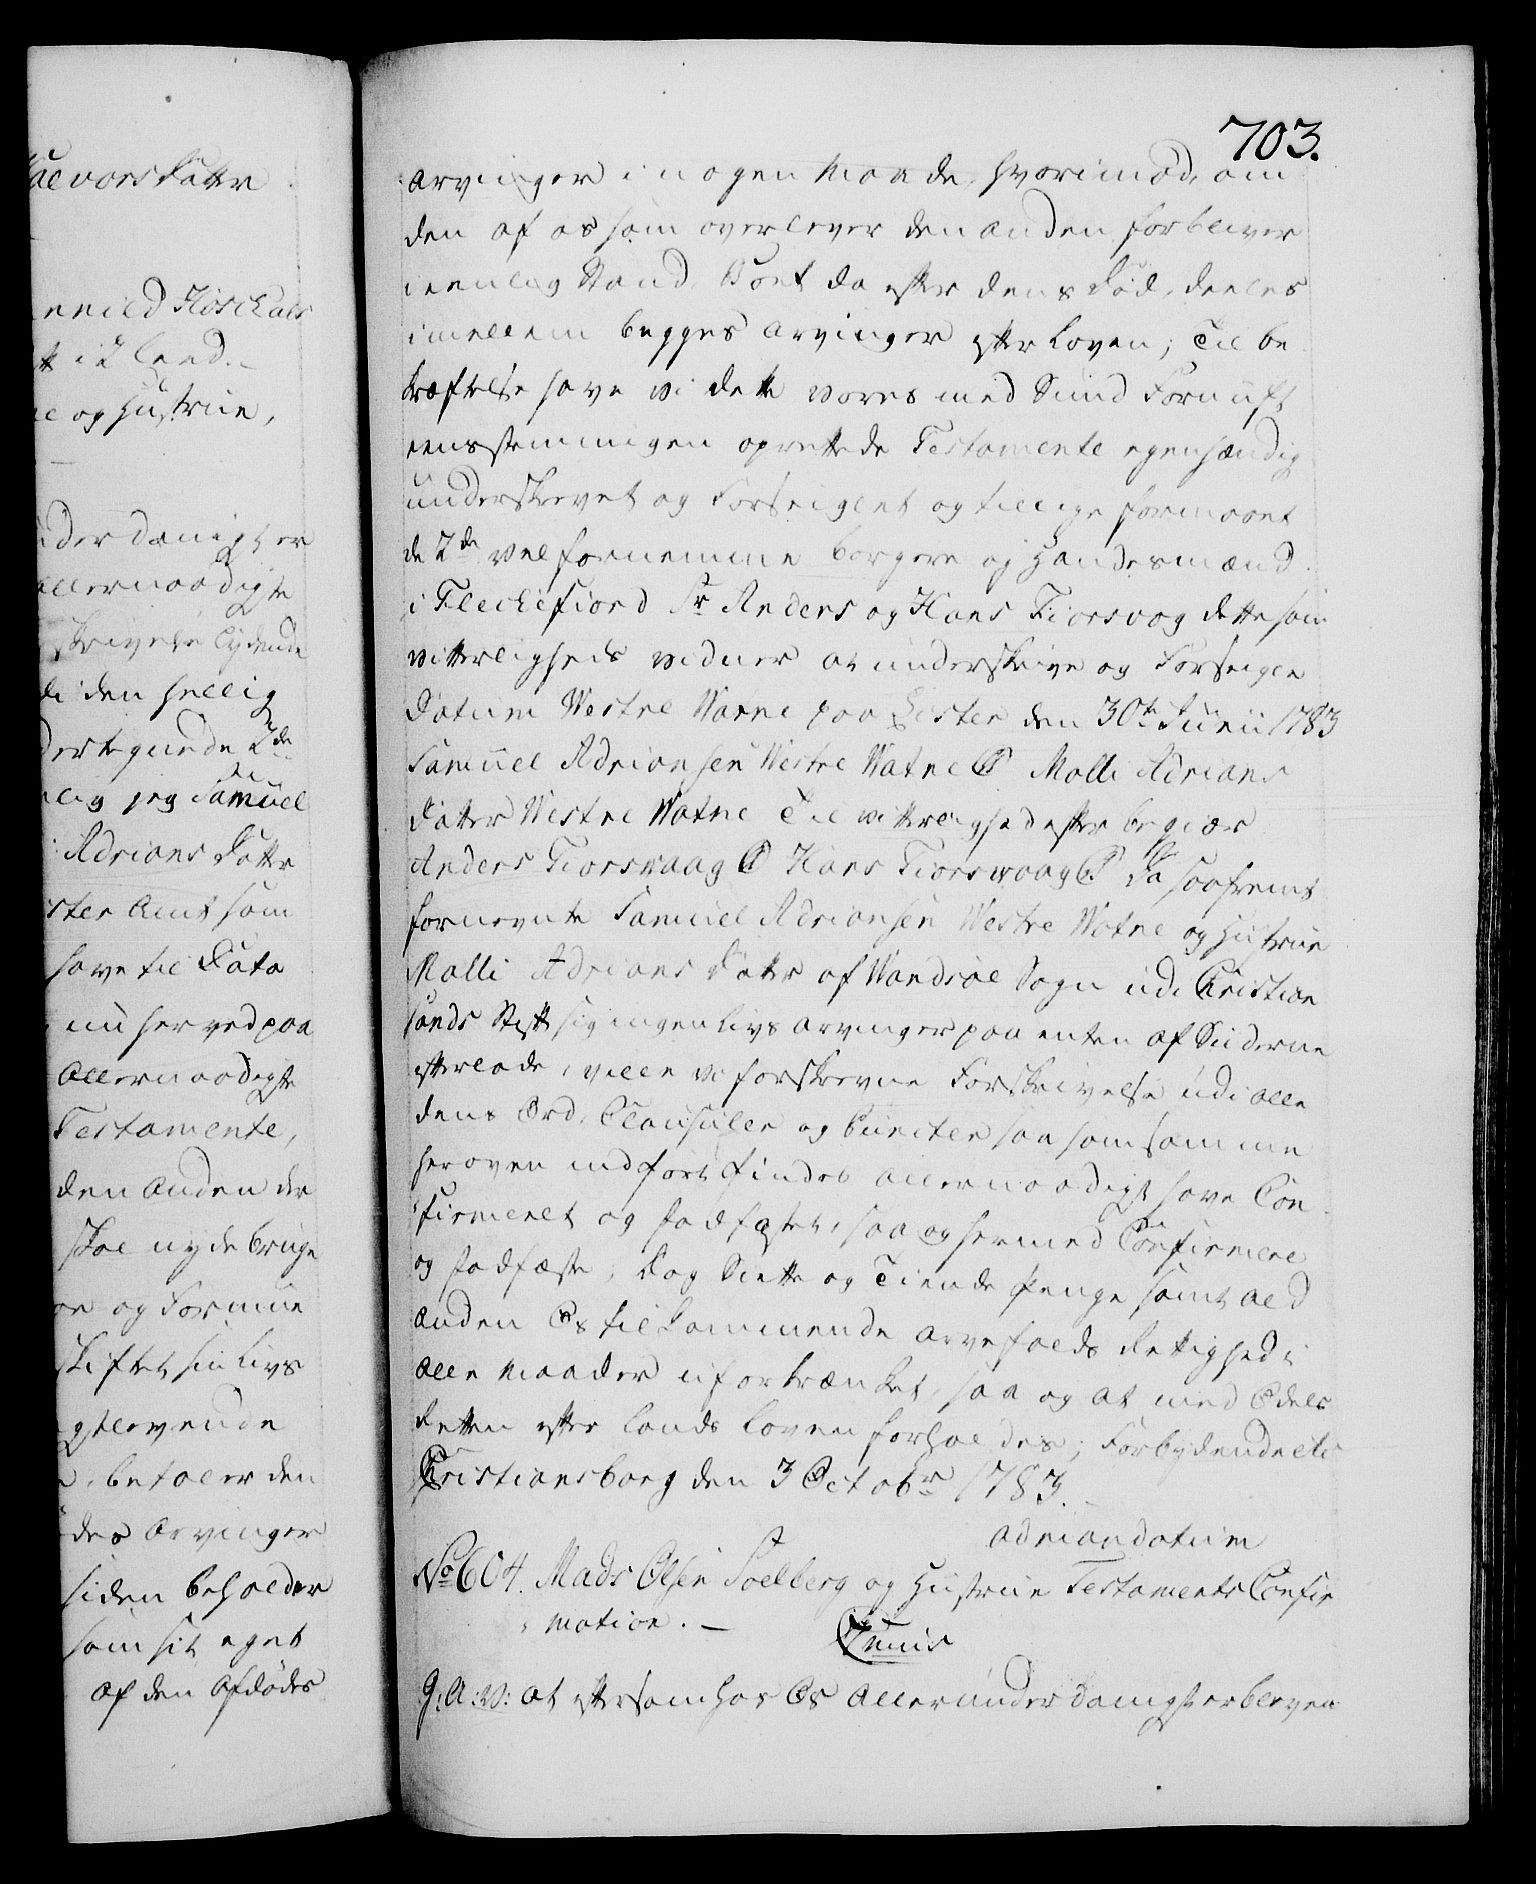 703.
arvinger i nogen Maade, hvorimod, om
den af os som overlever den anden forbliver
i eenlig Stand, Boet da efter dens Død, deeles
imellem begges arvinger efter Loven; Til be
kræftelse have vi dette vores med Sund Fornuft
eensstemmigen oprettede Testamente egenhændig
underskrevet og Forseiglet og tillige formaaet
de 2de velfornemme borgere og Handelsmænd
i Fleckefiord Sr Anders og Hans Fiorsvog dette som
vitterligheds vidner at underskrive og Forseigle
Datum Westre Watne paa Lister den 30te Junii 1783
Samuel Adriansen Westre Watne Malli Adrians
datter Westre Watne Til vitterlighed efter begiær
Anders Fiorsvaag Hans Fiorsvaag Da saafremt
fornevnte Samuel Adriansen Westre Watne og Hustrue
Malli Adrians datter af Wandsøe Sogn udi Christian
sands Stift sig ingen livs arvinger paa enten af Siderne
efterlade, ville vi forskrevne Forskrivelse udi alle
dens Ord, Clausuler og Puncter saa som samme
heroven indført findes allernaadigst have Con
firmeret og stadfæstet, saa og hermed Confirmere
og stadfæste; Dog Siette og Tiende Penge samt ald
anden Os tilkommende arvefalds Rettighed i
alle Maader uforkrænket, saa og at med Odels
Retten efter Lands Loven forholdes; Forbydende etc
Christiansborg den 3 Octobr 1783.
ad mandatum
No 604. Mads Olsen Soelberg og Hustrue Testaments Confir
mation. —
G: A: V: at eftersom hos Os allerunderdanigst er bleven
Halvorsdatter
og Hustrue,
underdanigst er
allernaadigste
Forskrivelse lydende
den hellig
2de
jeg Samuel
Adrians datter
Lister Amt som
have til Dato
nu herved paa
allernaadigste
Testamente,
den anden der
skal nyde bruge
og Formue
skiftet sin Livs
betaler den
arvinger
siden beholder
som sit eget
af den afdødes